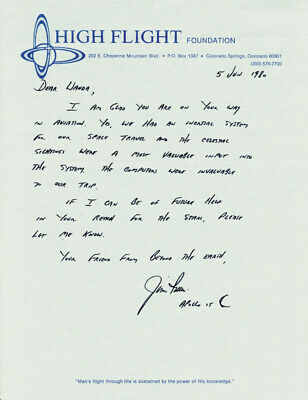 HIGH FLIGHT FOUNDATION
202 E. Cheyenne Mountain Blvd. • P.O. Box 1387 • Colorado Springs, Colorado 80901
(303) 576-7700
5 Jun 1980
Dear Wanda,
I am glad you are on your way
in aviation. Yes, we had an inertial system
for our space travel and the celestial
sightings were a most valuable input into
the system. The computers were invaluable
to our trip.
If I can be of future help
in your reach for the stars, please
let me know.
Your friend from beyond the earth,
Jim Irwin
Apollo 15
"Man's flight through life is sustained by the power of His knowledge."